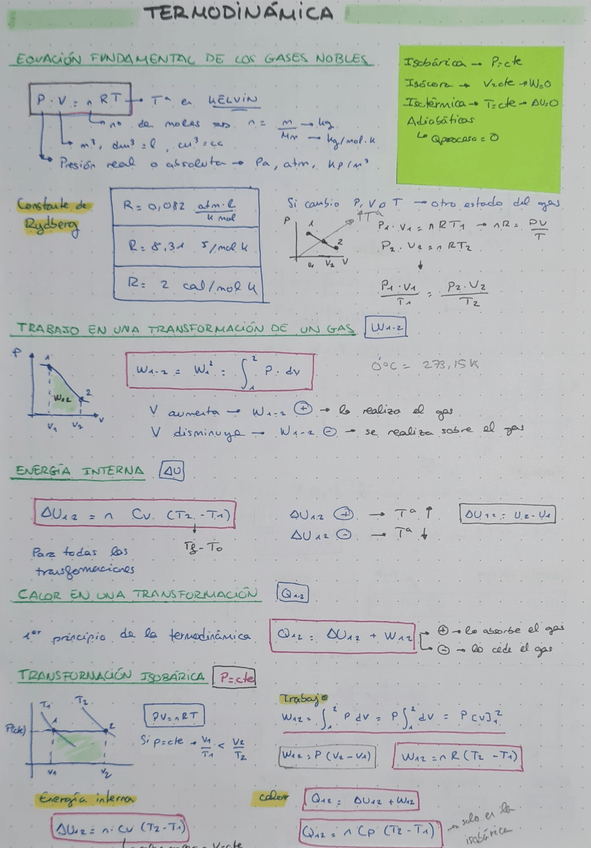 TERMODINÁMICA
ECUACIÓN FUNDAMENTAL DE LOS GASES NOBLES
Isobárica → P=cte
Isócora → V=cte → W=0
Isotérmica → T=cte → ΔU=0
Adiabáticas
↳ Qproceso = 0
P · V = n RT → Tª en KELVIN
nº de moles → n = m/Mm → kg → kg/mol·k
m³, dm³=l, cm³=cc
Presión real o absoluta → Pa, atm, kp/m²
Constante de Rydberg
R = 0,082 atm·l / k mol
R = 8,31 J/mol k
R = 2 cal/mol k
Si cambio P, V o T → otro estado del gas
P 1 2 V1 V2 V ↑T
P1 · V1 = n RT1 → nR = PV/T
P2 · V2 = n RT2
↓
P1 · V1 / T1 = P2 · V2 / T2
TRABAJO EN UNA TRANSFORMACIÓN DE UN GAS W1-2
P 1 2 W12 V1 V2 V
W1-2 = W1² = ∫₁² P · dv
0ºC = 273,15 K
V aumenta → W1-2 ⊕ → lo realiza el gas
V disminuye → W1-2 ⊖ → se realiza sobre el gas
ENERGÍA INTERNA ΔU
ΔU12 = n Cv · (T2 - T1)
Tf - T0
Para todas las
transformaciones
ΔU12 ⊕ → Tª ↑
ΔU12 ⊖ → Tª ↓
ΔU12 = U2 - U1
CALOR EN UNA TRANSFORMACIÓN Q12
1er principio de la termodinámica Q12 = ΔU12 + W12
⊕ → lo absorbe el gas
⊖ → lo cede el gas
TRANSFORMACIÓN ISOBÁRICA P=cte
T1 T2 P(cte) 1 2 V1 V2
PV = nRT
Si p=cte → V1/T1 < V2/T2
Trabajo
W12 = ∫₁² P dv = P ∫₁² dv = P [V]₁²
W12 = P (V2 - V1)
W12 = n R (T2 - T1)
Energía interna
ΔU12 = n · Cv (T2 - T1)
calor
Q12 = ΔU12 + W12
Q12 = n Cp (T2 - T1) → solo en la
isobárica